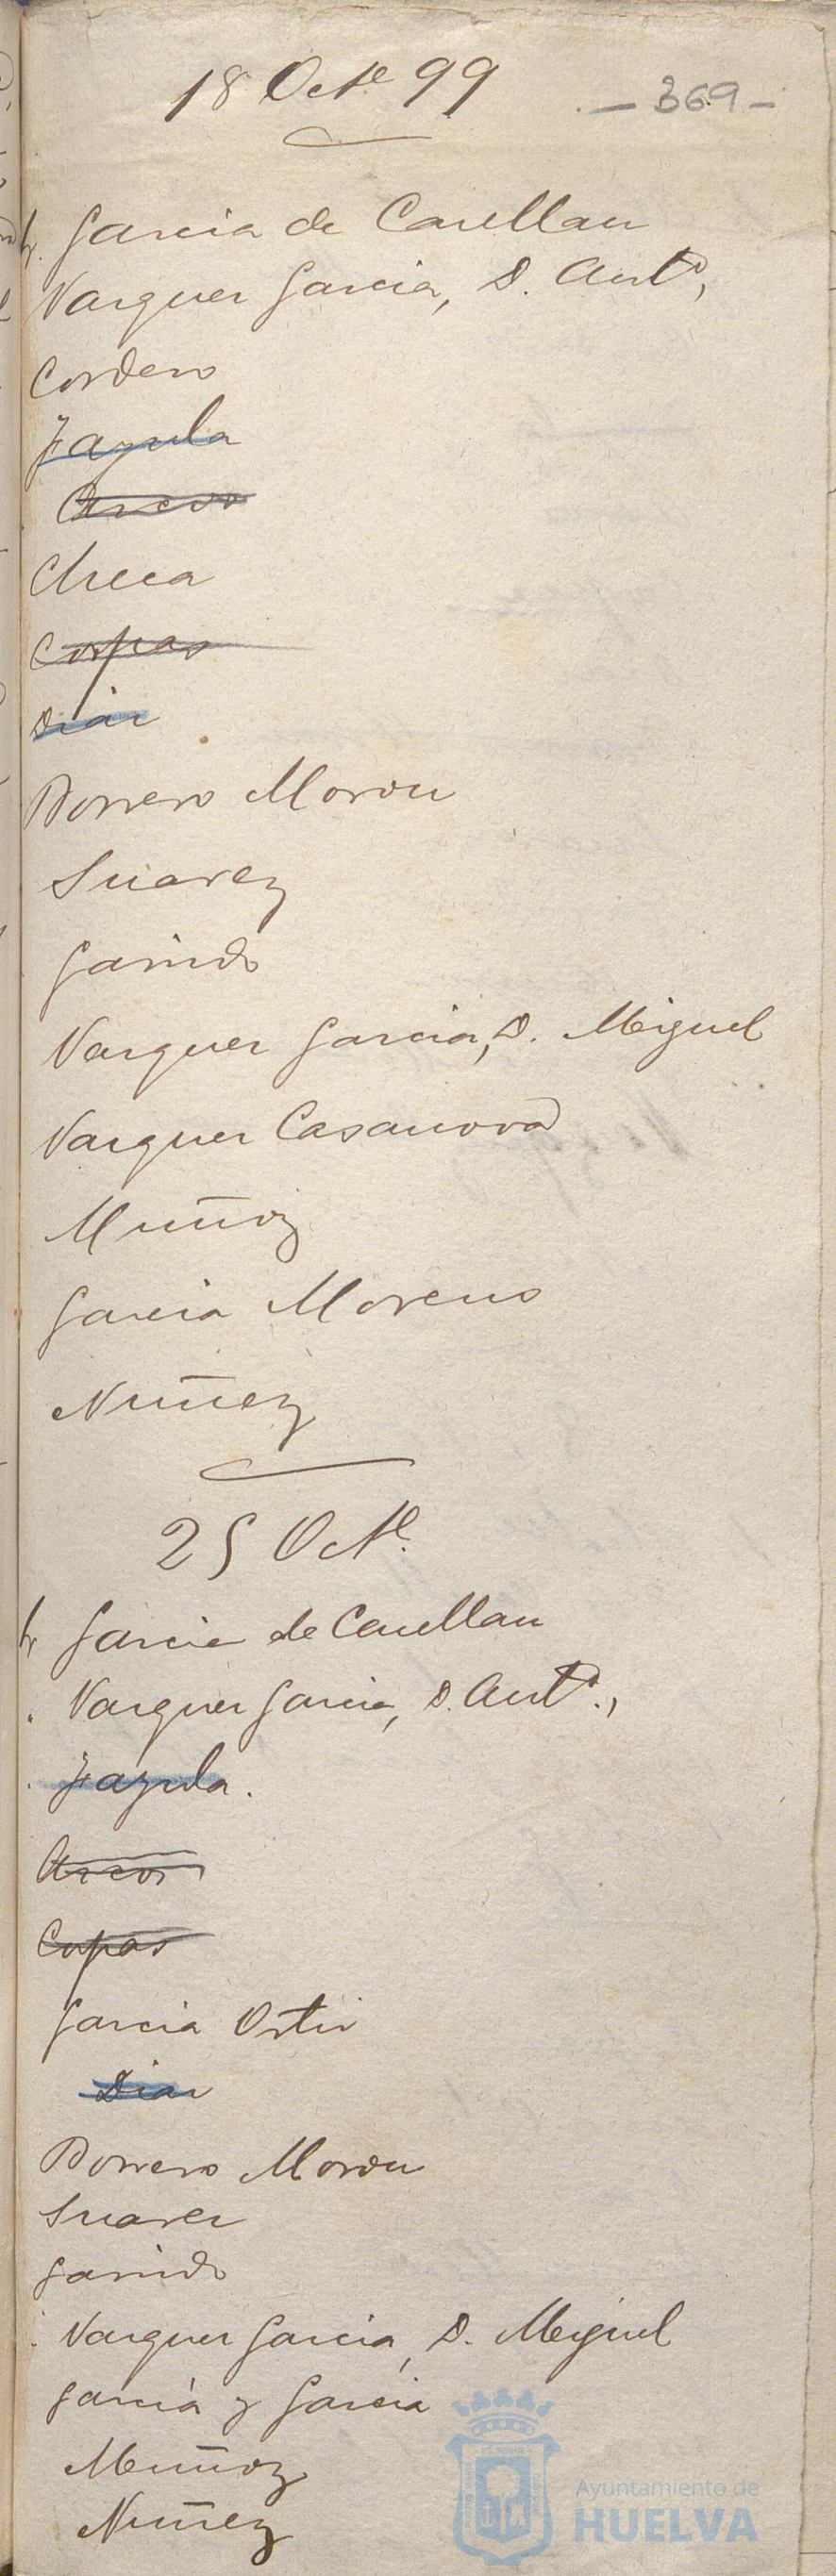 18 Oct.e 99
- 369 -
Sr. Garcia de Casellan
Vazquez Garcia, D. Antº,
Cordero
Zayula
Arcos
Checa
Corpas
Diaz
Borrero Moron
Suarez
Garrido
Vazquez Garcia, D. Miguel
Vazquez Casanova
Muñoz
Garcia Moreno
Nuñez
25 Oct.e
Sr. Garcia de Casellan
Vazquez Garcia, D. Antº.,
Zayula.
Arcos
Corpas
Garcia Ortiz
Diaz
Borrero Moron
Suarez
Garrido
Vazquez Garcia, D. Miguel
Garcia y Garcia
Muñoz
Nuñez
Ayuntamiento de
HUELVA